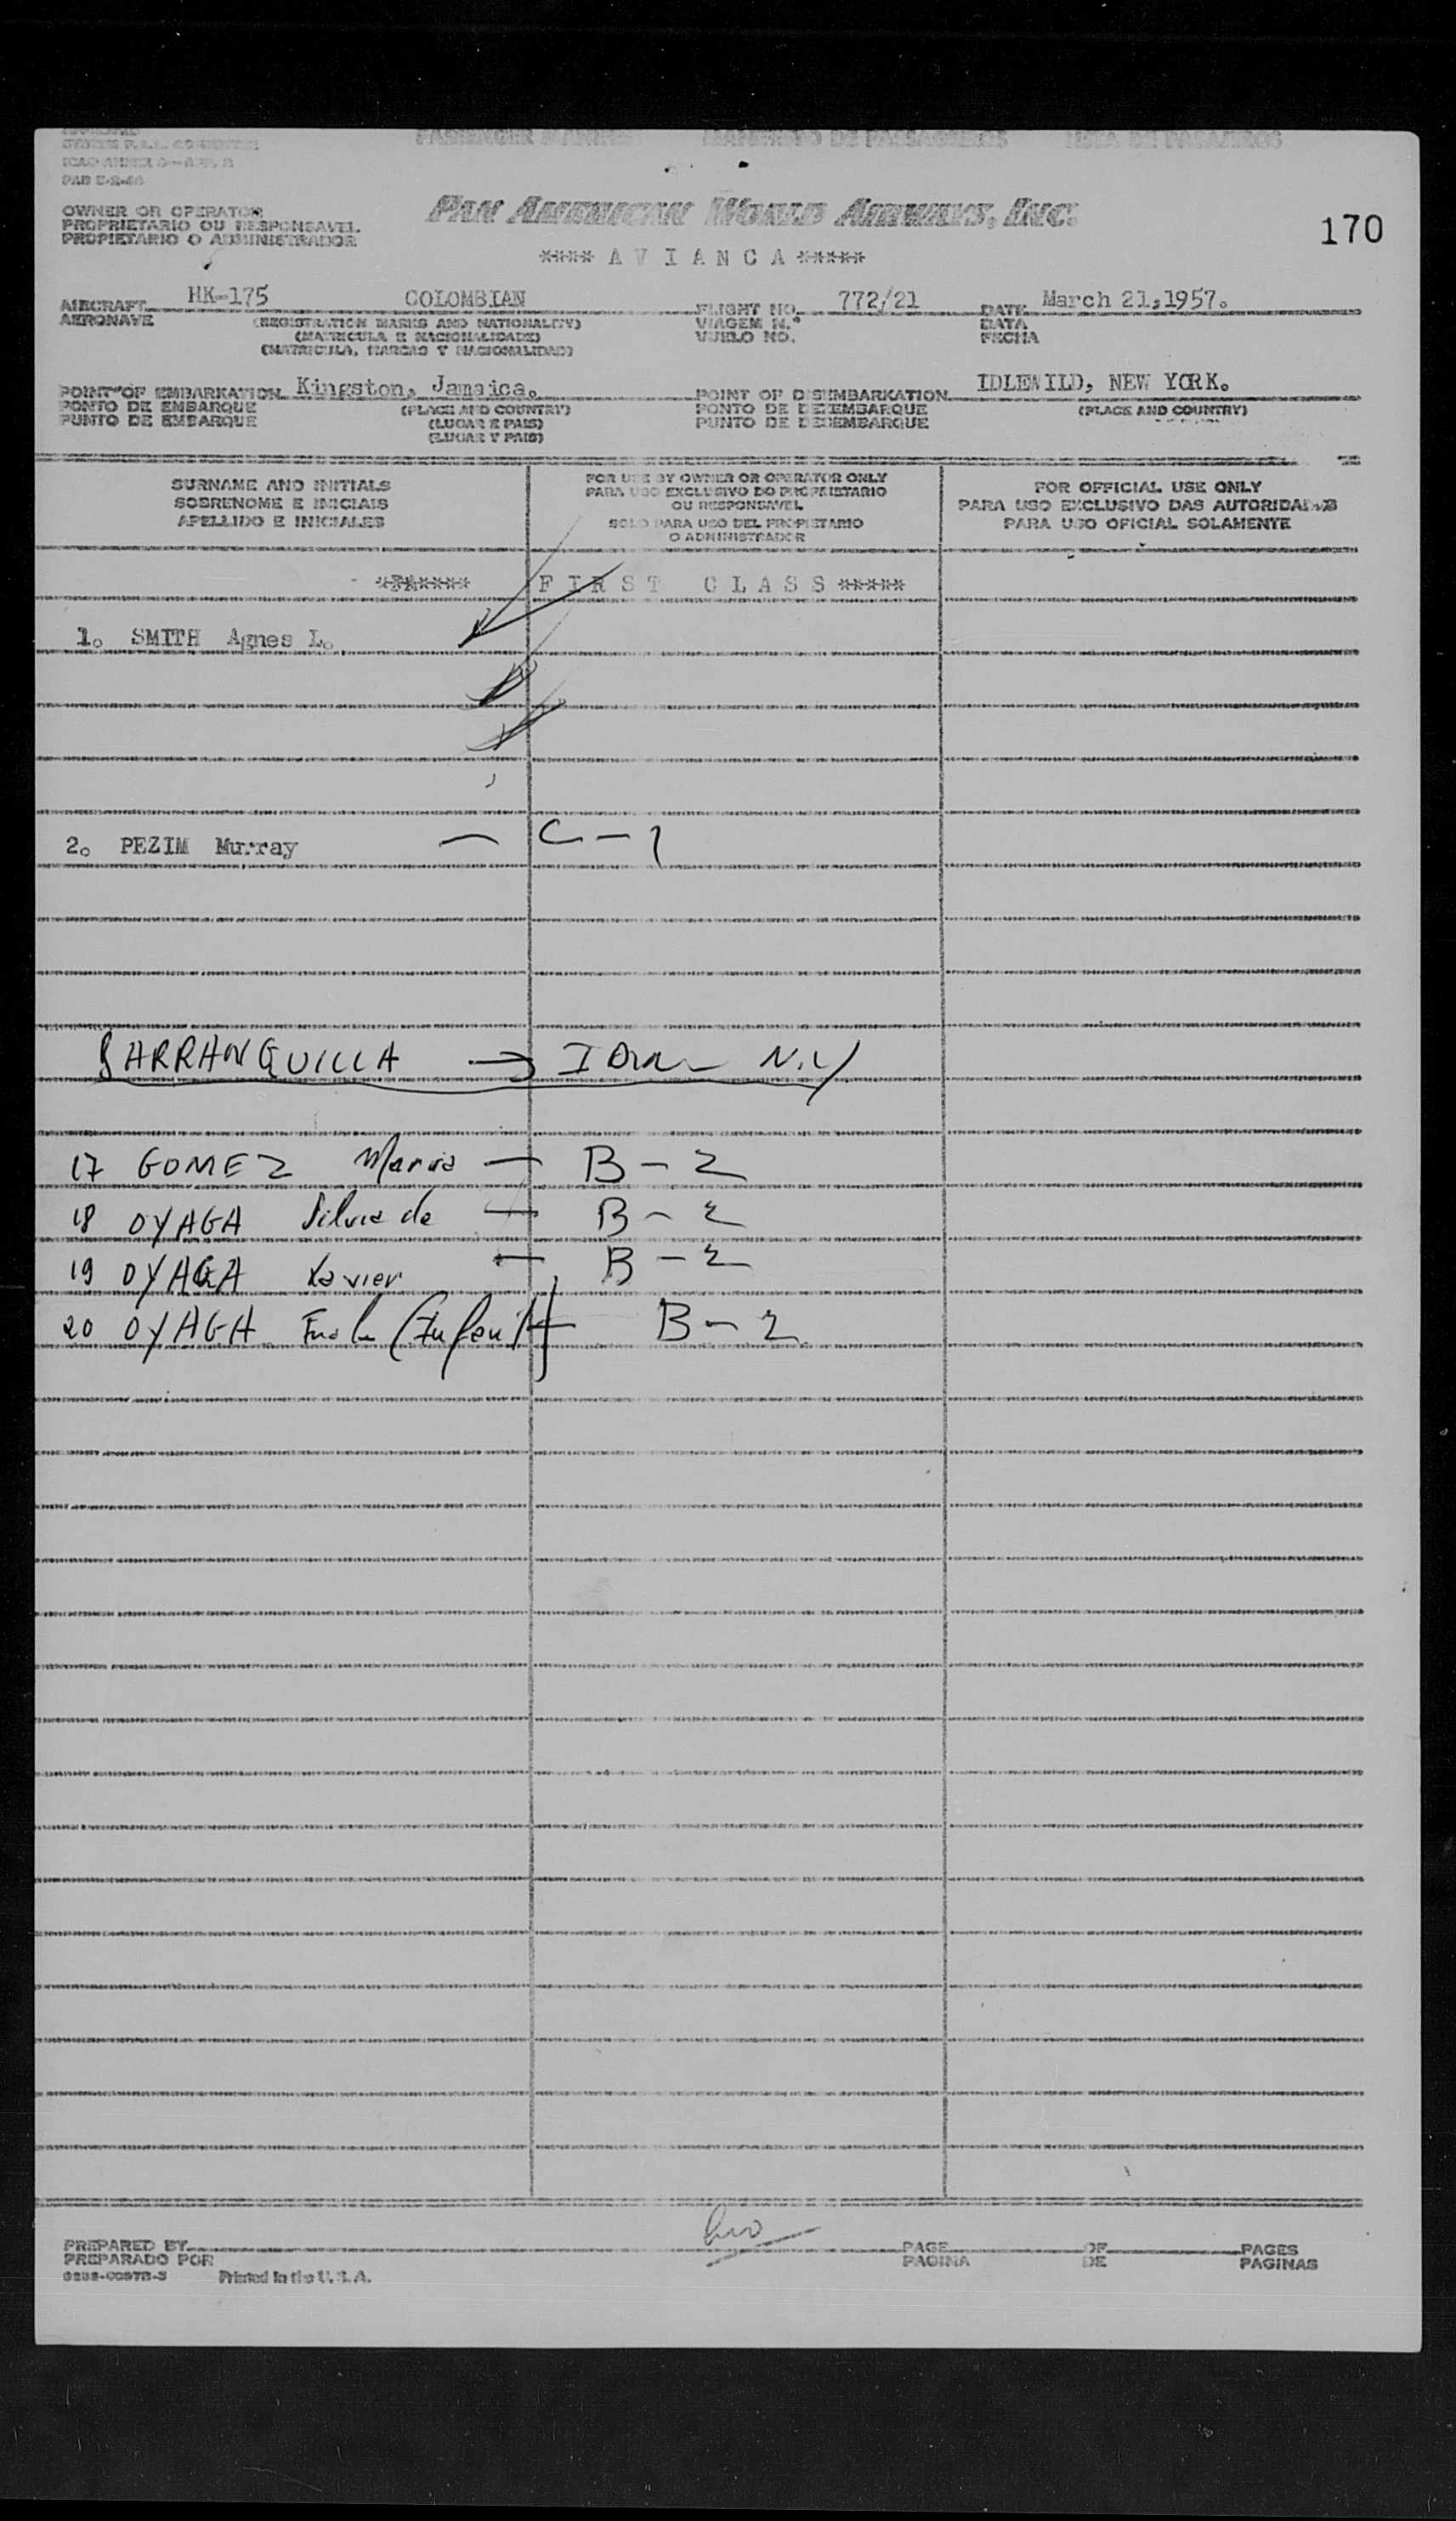 PASSENGER MANIFEST MANIFIESTO DE PASAJEROS LISTA DE PASAJEROS
ICAO ANNEX 9—APP.
OWNER OR OPERATOR
PROPRIETARIO OU RESPONSAVEL
PROPIETARIO O ADMINISTRADOR
PAN AMERICAN WORLD AIRWAYS, INC.
170
**** A V I A N C A *****
AIRCRAFT HK-175 COLOMBIAN FLIGHT NO. 772/21 DATE March 21,1957.
AERONAVE (REGISTRATION MARKS AND NATIONALITY) VIAGEM N.º DATA
(MATRICULA E NACIONALIDADE) VUELO NO. FECHA
(MATRICULA, MARCAS Y NACIONALIDAD)
POINT OF EMBARKATION Kingston, Jamaica. POINT OF DISEMBARKATION IDLEWILD, NEW YORK.
PONTO DE EMBARQUE (PLACE AND COUNTRY) PONTO DE DESEMBARQUE (PLACE AND COUNTRY)
PUNTO DE EMBARQUE (LUGAR E PAIS) PUNTO DE DESEMBARQUE
(LUGAR Y PAIS)
SURNAME AND INITIALS
SOBRENOME E INICIAIS
APELLIDO E INICIALES
FOR USE BY OWNER OR OPERATOR ONLY
PARA USO EXCLUSIVO DO PROPRIETARIO
OU RESPONSAVEL
SOLO PARA USO DEL PROPIETARIO
O ADMINISTRADOR
FOR OFFICIAL USE ONLY
PARA USO EXCLUSIVO DAS AUTORIDADES
PARA USO OFICIAL SOLAMENTE
F I R S T C L A S S *****
1. SMITH Agnes L.
2. PEZIM Murray — C-1
BARRANQUILLA → N.Y
17 GOMEZ Maria — B-2
18 OYAGA Silvia de — B-2
19 OYAGA Xavier — B-2
20 OYAGA (Infent) — B-2
PREPARED BY PAGE OF PAGES
PREPARADO POR PAGINA DE PAGINAS
Printed in the U.S.A.